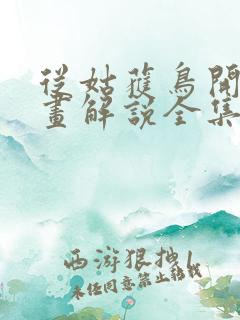 從姑獲鳥開
畫解說全集
西游狠拽1
未经同意禁止转载